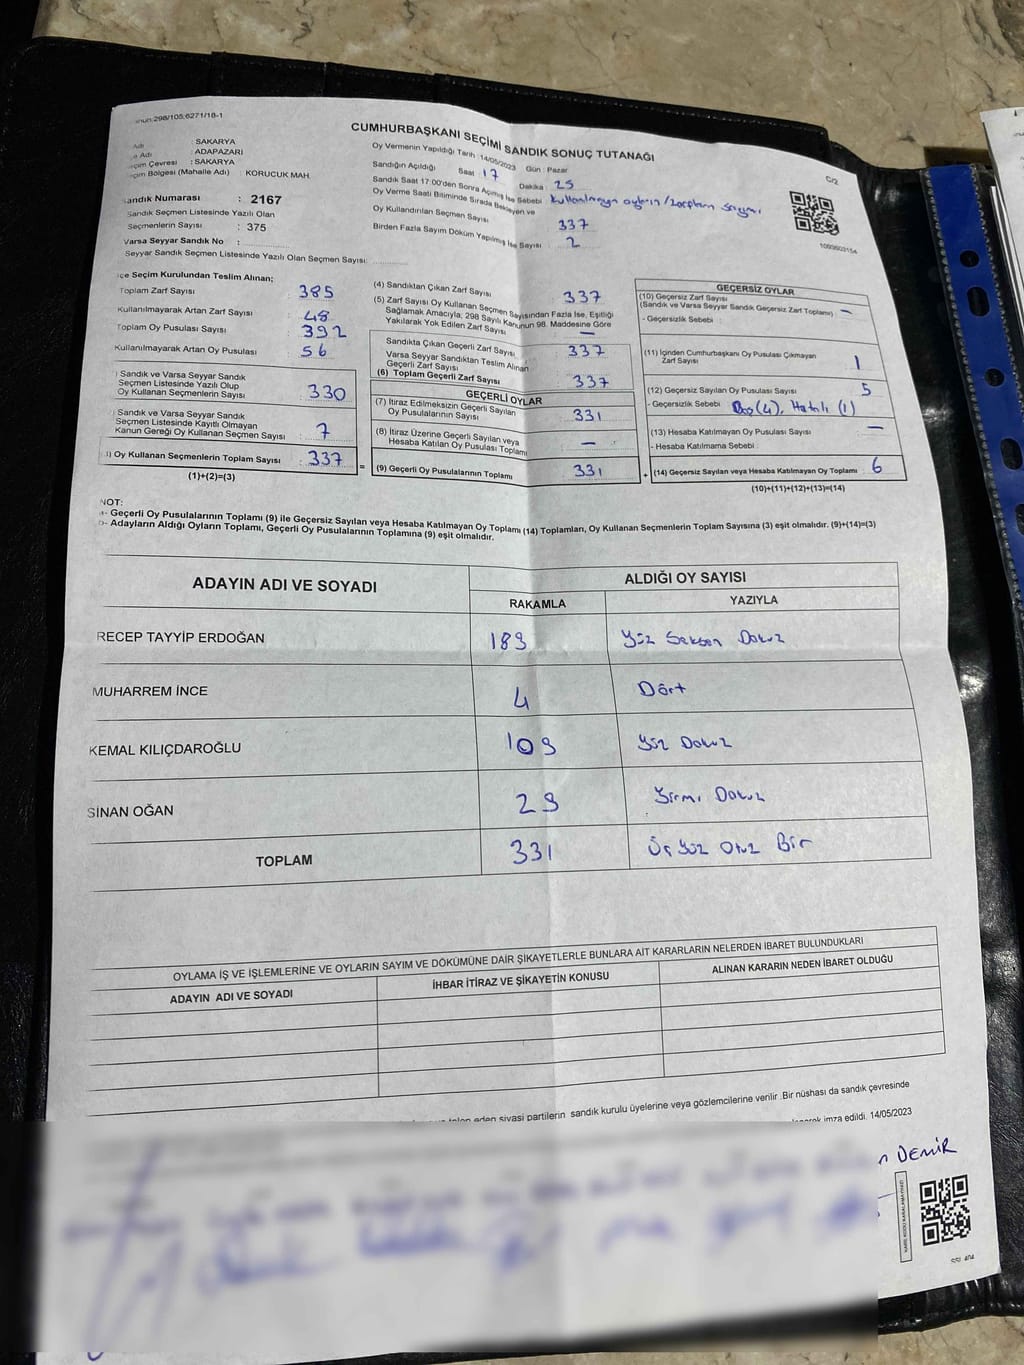 298/105;6271/18-1
CUMHURBAŞKANI SEÇİMİ SANDIK SONUÇ TUTANAĞI
C/2
Adı : SAKARYA
Adı : ADAPAZARI
Çevresi : SAKARYA
Bölgesi (Mahalle Adı) : KORUCUK MAH.
Sandık Numarası : 2167
Sandık Seçmen Listesinde Yazılı Olan
Seçmenlerin Sayısı : 375
Varsa Seyyar Sandık No :
Seyyar Sandık Seçmen Listesinde Yazılı Olan Seçmen Sayısı:
Oy Vermenin Yapıldığı Tarih :14/05/2023 Gün : Pazar
Sandığın Açıldığı Saat 17 Dakika : 25
Sandık Saat 17:00'den Sonra Açılmış İse Sebebi Kullanılmayan oyların/zarfların sayımı
Oy Verme Saati Bitiminde Sırada Bekleyen ve
Oy Kullandırılan Seçmen Sayısı 337
Birden Fazla Sayım Döküm Yapılmış İse Sayısı : 2
Seçim Kurulundan Teslim Alınan;
Toplam Zarf Sayısı : 385
Kullanılmayarak Artan Zarf Sayısı : 48
Toplam Oy Pusulası Sayısı : 392
Kullanılmayarak Artan Oy Pusulası : 56
Sandık ve Varsa Seyyar Sandık
Seçmen Listesinde Yazılı Olup
Oy Kullanan Seçmenlerin Sayısı : 330
Sandık ve Varsa Seyyar Sandık
Seçmen Listesinde Kayıtlı Olmayan
Kanun Gereği Oy Kullanan Seçmen Sayısı : 7
Oy Kullanan Seçmenlerin Toplam Sayısı : 337
(1)+(2)=(3)
(4) Sandıktan Çıkan Zarf Sayısı : 337
(5) Zarf Sayısı Oy Kullanan Seçmen Sayısından Fazla İse, Eşitliği
Sağlamak Amacıyla, 298 Sayılı Kanunun 98. Maddesine Göre
Yakılarak Yok Edilen Zarf Sayısı : —
Sandıkta Çıkan Geçerli Zarf Sayısı : 337
Varsa Seyyar Sandıktan Teslim Alınan
Geçerli Zarf Sayısı
(6) Toplam Geçerli Zarf Sayısı : 337
GEÇERLİ OYLAR
(7) İtiraz Edilmeksizin Geçerli Sayılan
Oy Pusulalarının Sayısı : 331
(8) İtiraz Üzerine Geçerli Sayılan veya
Hesaba Katılan Oy Pusulası Toplamı : —
= (9) Geçerli Oy Pusulalarının Toplamı : 331
GEÇERSİZ OYLAR
(10) Geçersiz Zarf Sayısı
(Sandık ve Varsa Seyyar Sandık Geçersiz Zarf Toplamı) : —
- Geçersizlik Sebebi :
(11) İçinden Cumhurbaşkanı Oy Pusulası Çıkmayan
Zarf Sayısı : 1
(12) Geçersiz Sayılan Oy Pusulası Sayısı : 5
- Geçersizlik Sebebi : Boş(4), Hatalı (1)
(13) Hesaba Katılmayan Oy Pusulası Sayısı : —
- Hesaba Katılmama Sebebi :
+ (14) Geçersiz Sayılan veya Hesaba Katılmayan Oy Toplamı : 6
(10)+(11)+(12)+(13)=(14)
NOT:
a- Geçerli Oy Pusulalarının Toplamı (9) ile Geçersiz Sayılan veya Hesaba Katılmayan Oy Toplamı (14) Toplamları, Oy Kullanan Seçmenlerin Toplam Sayısına (3) eşit olmalıdır. (9)+(14)=(3)
b- Adayların Aldığı Oyların Toplamı, Geçerli Oy Pusulalarının Toplamına (9) eşit olmalıdır.
ADAYIN ADI VE SOYADI ALDIĞI OY SAYISI
RAKAMLA YAZIYLA
RECEP TAYYİP ERDOĞAN 189 Yüz Seksen Dokuz
MUHARREM İNCE 4 Dört
KEMAL KILIÇDAROĞLU 109 Yüz Dokuz
SİNAN OĞAN 29 Yirmi Dokuz
TOPLAM 331 Üç Yüz Otuz Bir
OYLAMA İŞ VE İŞLEMLERİNE VE OYLARIN SAYIM VE DÖKÜMÜNE DAİR ŞİKAYETLERLE BUNLARA AİT KARARLARIN NELERDEN İBARET BULUNDUKLARI
ADAYIN ADI VE SOYADI İHBAR İTİRAZ VE ŞİKAYETİN KONUSU ALINAN KARARIN NEDEN İBARET OLDUĞU
eden siyasi partilerin sandık kurulu üyelerine veya gözlemcilerine verilir .Bir nüshası da sandık çevresinde
imza edildi. 14/05/2023
DEMİR
KARE KODU KARALAMAYINIZ!